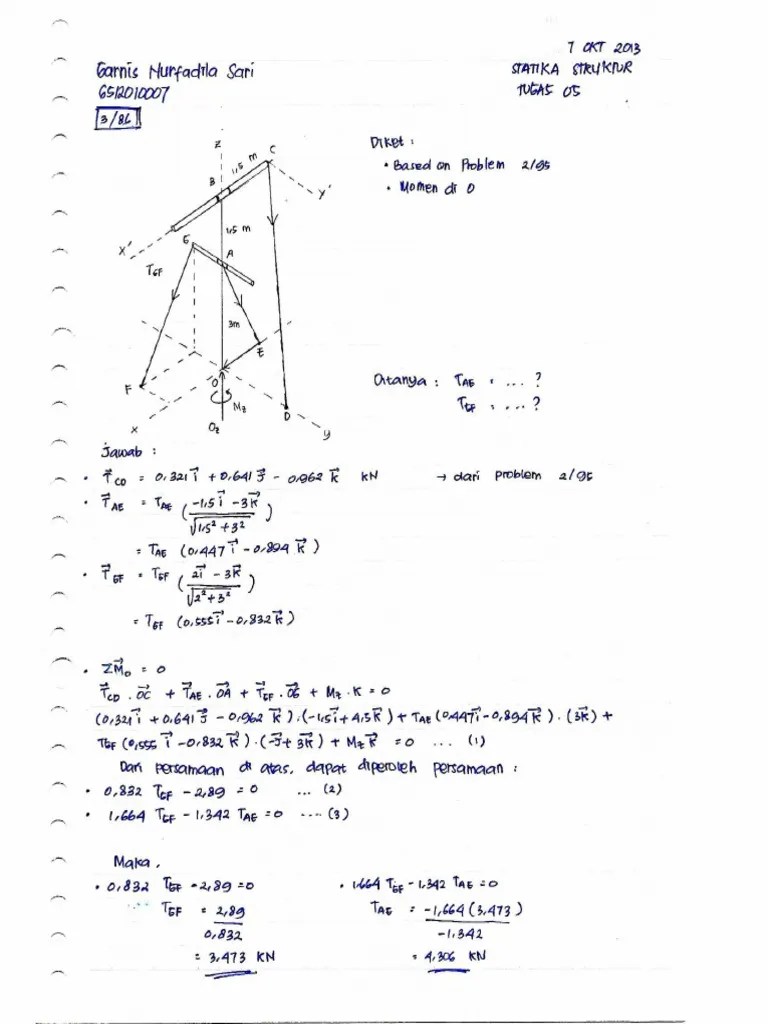 7 OKT 2013
Garnis Nurfadila Sari
STATIKA STRUKTUR
6512010007
TUGAS 05
3/86
Diket :
• Based on Problem 2/95
• Momen di O
Z
C
1,5 m
B
Y'
1,5 m
X'
G
A
T_GF
3m
E
F
O
M_z
D
x
O_z
y
Ditanya : T_AE = ... ?
T_GF = ... ?
Jawab :
• T⃗_CD = 0,321 i⃗ + 0,641 j⃗ - 0,962 k⃗ kN → dari problem 2/95
• T⃗_AE = T_AE ( (-1,5 i⃗ - 3k⃗) / √(1,5² + 3²) )
= T_AE (0,447 i⃗ - 0,894 k⃗)
• T⃗_GF = T_GF ( (2i⃗ - 3k⃗) / √(2² + 3²) )
= T_GF (0,555 i⃗ - 0,832 k⃗)
• ΣM⃗_O = 0
T⃗_CD . OC⃗ + T⃗_AE . OA⃗ + T⃗_GF . OG⃗ + M_z . K = 0
(0,321 i⃗ + 0,641 j⃗ - 0,962 k⃗) . (-1,5 i⃗ + 4,5 k⃗) + T_AE (0,447 i⃗ - 0,894 k⃗) . (3k⃗) +
T_GF (0,555 i⃗ - 0,832 k⃗) . (-j⃗ + 3k⃗) + M_z k⃗ = 0 ... (1)
Dari persamaan di atas, dapat diperoleh persamaan :
• 0,832 T_GF - 2,89 = 0 ... (2)
• 1,664 T_GF - 1,342 T_AE = 0 .... (3)
Maka,
• 0,832 T_GF - 2,89 = 0
T_GF = 2,89 / 0,832
= 3,473 kN
• 1,664 T_GF - 1,342 T_AE = 0
T_AE = -1,664 (3,473) / -1,342
= 4,306 kN